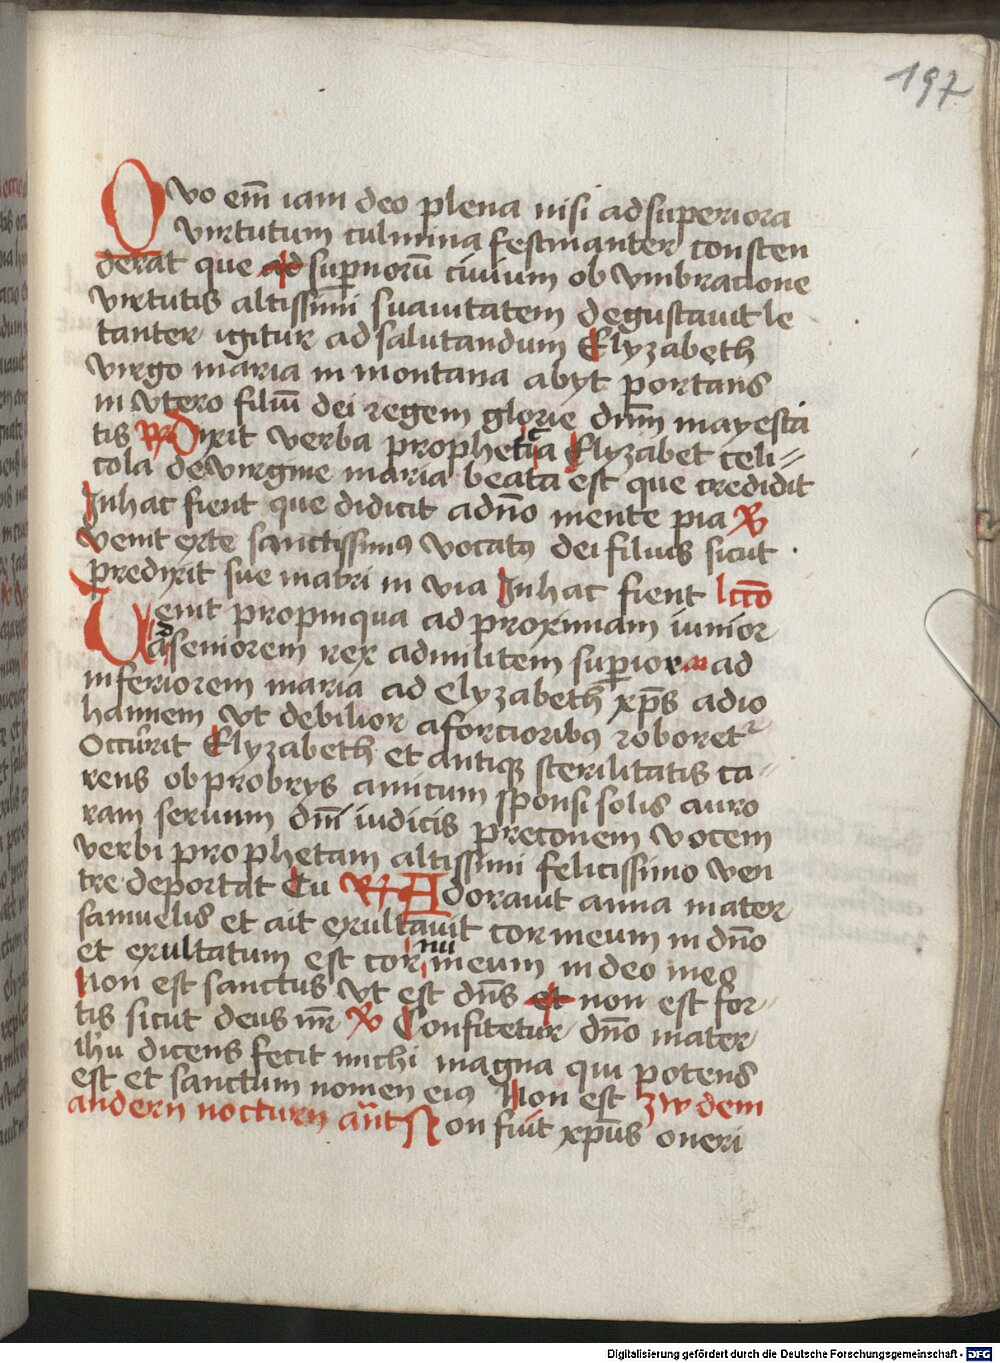 197
Quo em̄ iam deo plena nisi ad superiora
virtutum culmina festinanter conscen
derat que ad sup̱noru͂ ciuium ob vmbracione
virtutis altissimi suauitatem degustauit le
tanter igitur ad salutandum Elyzabeth
virgo maria in montana abyt portans
in vtero filiu͂ dei regem glorie dn͂m mayesta
tis R̶ Dixit verba prophetica Elyzabet celi=
cola de virgine maria beata est que credidit
In hac fient que didicit a dn͂o mente pia V̶
venit ex te sanctissimꝯ vocatꝯ dei filius sicut
predixit sue matri in via In hac fient lcc͂o
Uenit propinqua ad proximam iunior
ad seniorem rex ad militem sup̱ior ad
inferiorem maria ad elyzabeth xp͂s ad io
hannem vt debilior a forcioribꝯ roboret᷑
Occurrit Elyzabeth et antiqꝫ sterilitatis ca
rens obprobrys amicum sponsi solis auro
ram seruum dn͂i iudicis preconem vocem
verbi prophetam altissimi felicissimo ven
tre deportat Tu R̶ Adorauit anna mater
samuelis et ait exultauit cor meum in dn͂o
et exultatum est cornu meum in deo meo
Non est sanctus vt est dn͂s et non est for
tis sicut deus nr͂ V̶ Confitetur dn͂o mater
ih͂u dicens fecit michi magna qui potens
est et sanctum nomen eiꝯ Non est Zw dem
andern nocturn an͂t Non fuit xp͂us oneri
Digitalisierung gefördert durch die Deutsche Forschungsgemeinschaft - DFG